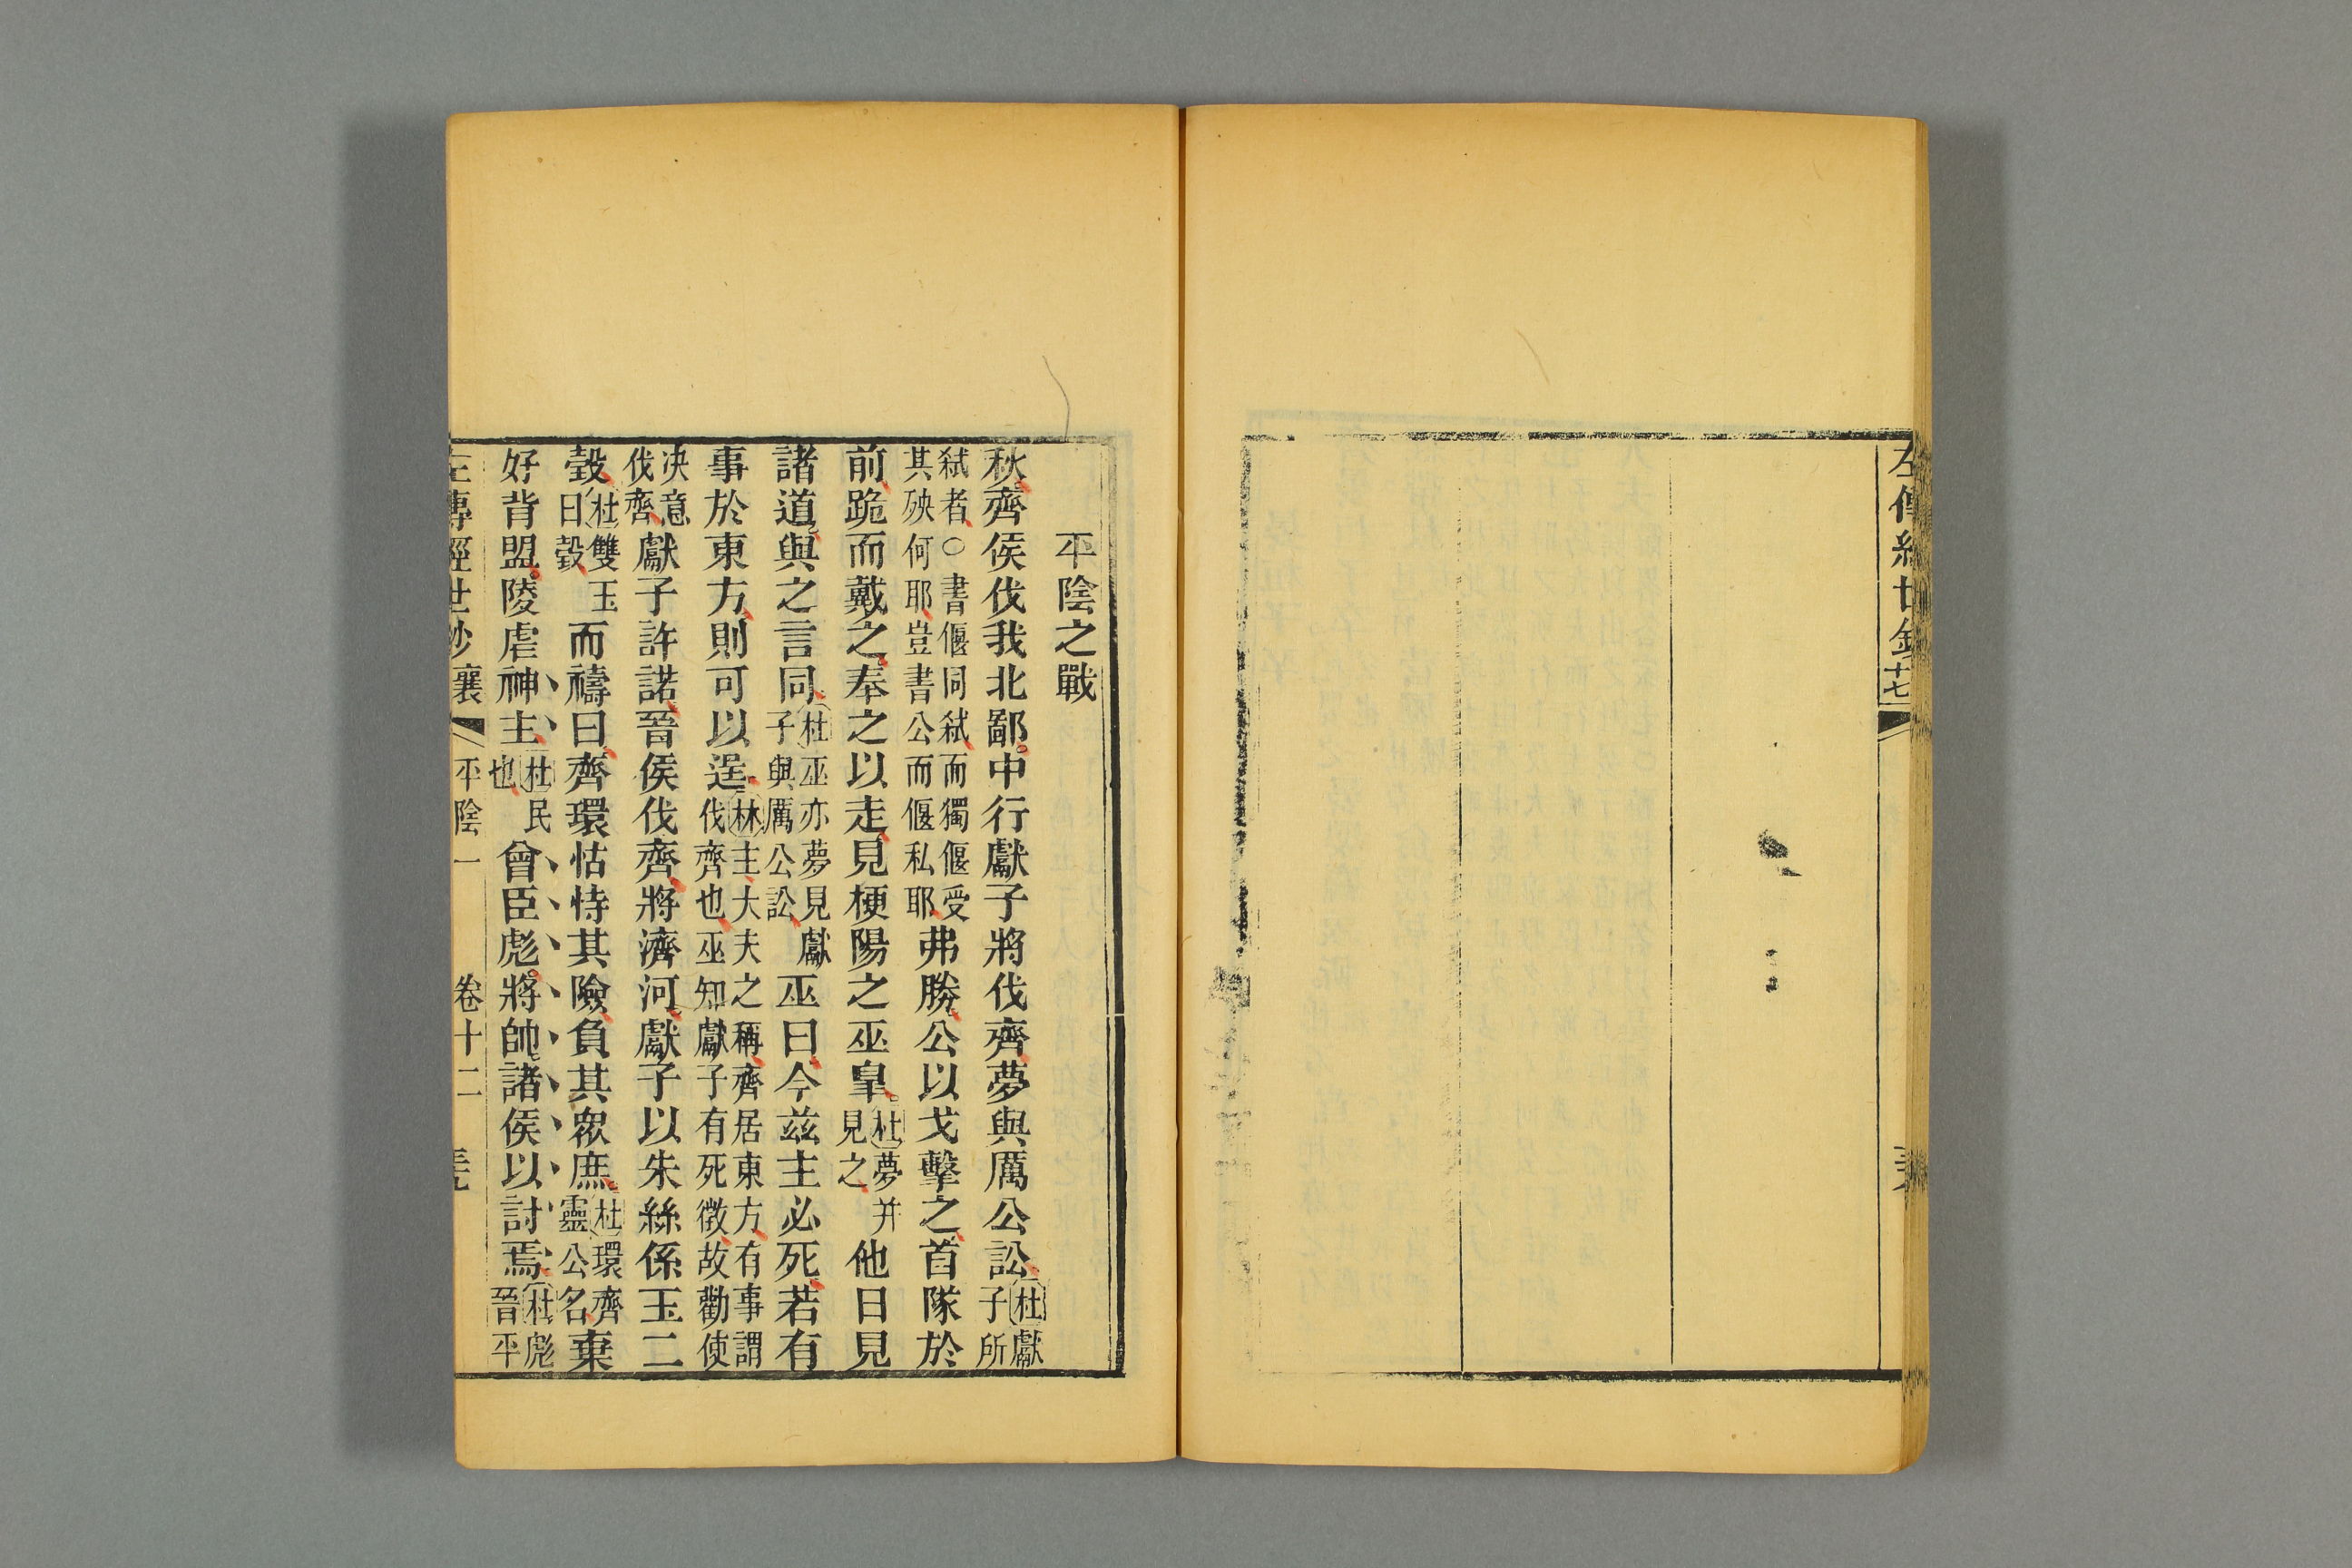 左傳經世鈔十七
平陰之戰
秋齊侯伐我北鄙中行獻子將伐齊夢與厲公訟杜獻子所
弑者○書偃同弑而獨偃受其殃何耶豈書公而偃私耶弗勝公以戈擊之首隊於
前跪而戴之奉之以走見梗陽之巫臯杜夢并見之他日見
諸道與之言同杜巫亦夢見獻子與厲公訟巫曰今兹主必死若有
事於東方則可以逞林主大夫之稱齊居東方有事謂伐齊也巫知獻子有死徵故勸使
决意伐齊獻子許諾晉侯伐齊將濟河獻子以朱絲係玉二
瑴杜雙玉曰瑴而禱曰齊環怙恃其險負其衆庶杜環齊靈公名棄
好背盟陵虐神主杜民也曾臣彪將帥諸侯以討焉杜彪晉平
左傳經世鈔襄 平陰一 卷十二